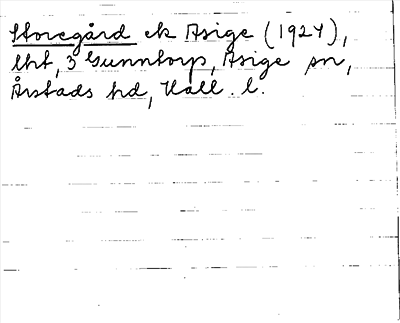 Storegård ek Asige (1924),
lht, 3 Gunntorp, Asige sn,
Årstads hd, Hall. l.